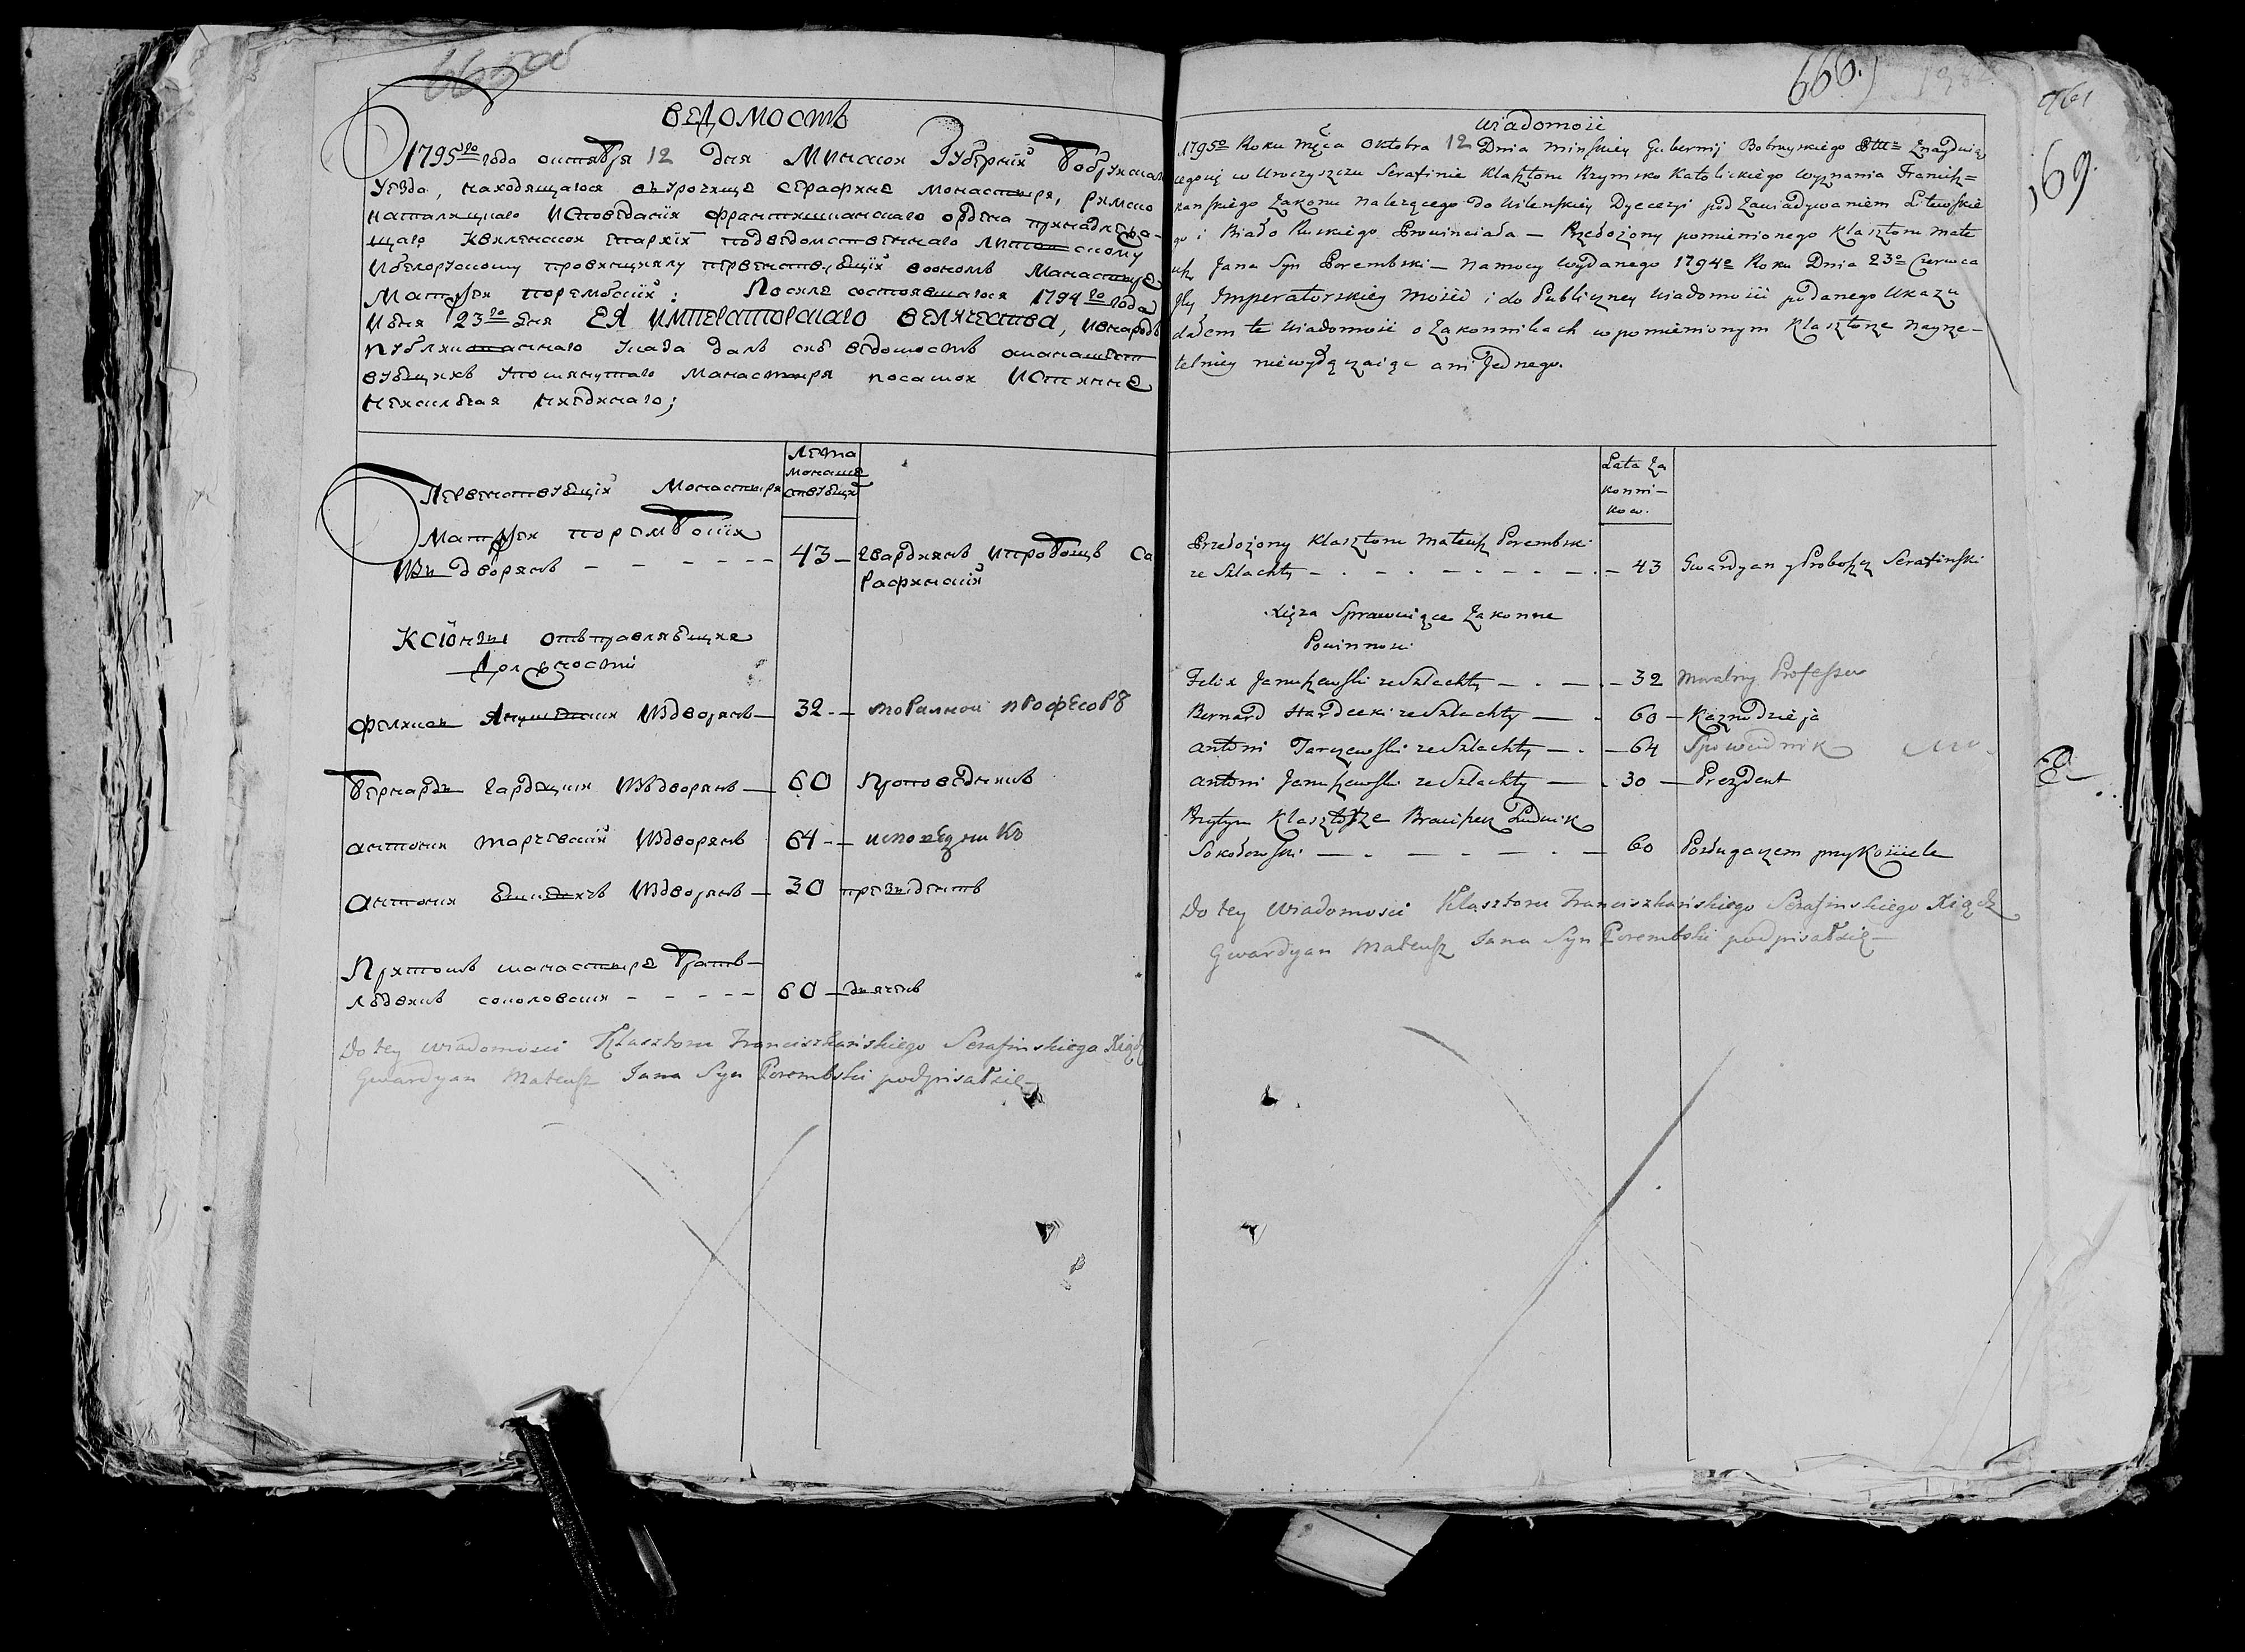 ВЕДОМОСТЬ
1795го года октября 12 дня Минской Губернїи Бобруйскаго
Уезда, находящагося въ урочище Серафине монастыря, Римско
католицкаго Исповеданїя францишканскаго ордена принадлежа-
щаго Квиленской епархїи подведомственнаго Литовскому
Ибелорускому провинциялу первенствующїй воономъ Манастире
Матеуш порембскїй: После состоявшагося 1794го года
Июня 23го дня ЕЯ ИМПЕРАТОРСКАГО ВЕЛИЧЕСТВА, Инародъ
публикованнаго Указа далъ сию ведомость
вующихъ упомянутаго манастыря посамой Истинне
неисключая ниединаго;
Первенствующїй Монастыря
Лета
монаше
ствующих
Матеуш порембскїи
Изъ дворянъ - - - - - -
43 - гвардиянъ ипробощъ Се
рафинскїй
Ксїонзы отъправляющие
Должности
Феликсъ Янушевски Издворянъ - 32 - моралной професоръ
Бернардъ гардецкии Изъдворянъ - 60 Проповедникъ
антони тарчевскїй Издворянъ 64 - исповедникъ
антони Издворянъ - 30 президентъ
Притомъ манастыре братъ -
людвикъ соколовски - - - - - 60 - дьячекъ
Do tey wiadomosci Klasztoru Franciszkańskiego Serafinskiego Xiądz
Gwardyan Mateusz Jana Syn Porembski podpisałsię -
666.
169.
Wiadomość
1795o Roku Męca Oktobra 12 Dnia Minskiey Gubernij Bobruyskiego Znayduią
cegosię w Uroczyszczu Serafinie Klasztoru Rzymsko Katolickiego Wyznania Francisz=
kanskiego Zakonu należącego do Wilenskiey Dyecezyi pod Zawiadywaniem Litewskie
go i Biało Ruskiego Prowinciała - Przełożony pomienionego Klasztoru Mate
usz Jana Syn Porembski - Namocy Wydanego 1794o Roku Dnia 23o Czerwca
Jey Imperatorskiey Mości i do Publiczney Wiadomości podanego Ukazu
dałem te Wiadomość o Zakonnikach wpomienionym Klasztorze Nayrze-
telniey niewyłączaiąc ani Jednego.
Lata Za
konni-
kow.
Przełożony Klasztoru Mateusz Porembski
ze Szlachty - . - . - . - . - 43 Gwardyan y Proboszcz Serafinski
Xięża Sprawuiące Zakonne
Powinnosci
Felix Januszewski ze Szlachty - . - . - 32 Moralny Professor
Bernard Hardecki ze Szlachty - . 60 - Kaznodzieja
Antoni Tarczewski ze Szlachty - . - 64 Spowiednik
Antoni Januszewski ze Szlachty - . 30 - Prezydent
Przytym Klasztorze Braciszek Ludwik
Sokołowski - . - . - . - 60 Posługaczem przy Kościele
Do tey Wiadomosci Klasztoru Franciszkańskiego Serafinskiego Xiądz
Gwardyan Mateusz Jana Syn Porembski podpisałsię -